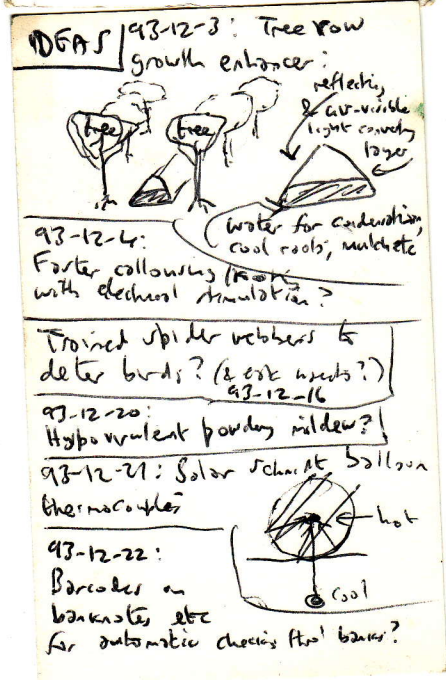 IDEAS
93-12-3: Tree row
growth enhancer:
reflecting
& air-visible
light
layer
tree
tree
water for condensation,
cool roots, mulch etc
93-12-4:
Faster callousing
with electrical stimulation?
Trained spider webbers to
deter birds? (& eat insects?)
93-12-16
93-12-20:
Hypovirulent powdery mildew?
93-12-21: Solar Schmidt balloon
thermocouples
hot
cool
93-12-22:
Barcodes on
banknotes etc
for automatic checking thro' banks?